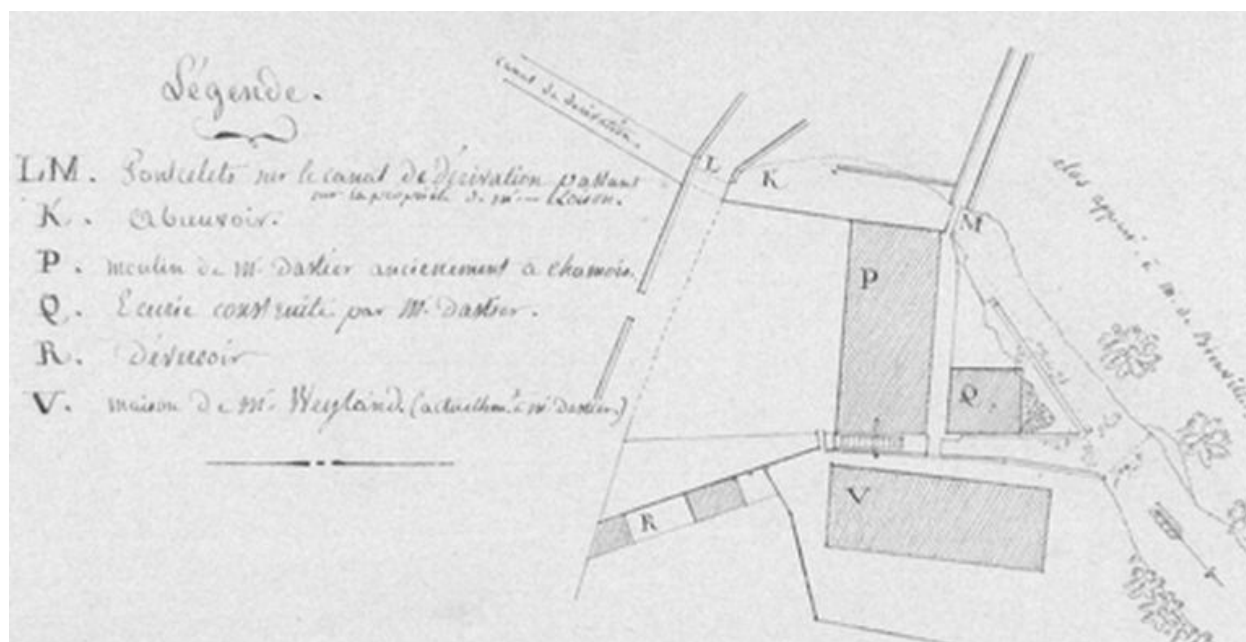 Légende.
LM. Pontcelets sur le canal de dérivation passant
sur la propriété de mr Loison.
K. abreuvoir.
P. moulin de mr. Dastier anciennement à chamois.
Q. Ecurie construite par M. Dastier.
R. déversoir
V. maison de mr. Weyland (actuellemt. à mr dastier.)
canal de dérivation.
L
K
M
P
Q.
R
V
clos appné à m. de